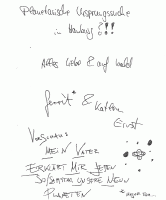 Planetarische Ursprungssuche
in Hamburg?!!
Alles Liebe & auf bald
& Kathrin
Ernst
MEIN VATER
ERKLÄRT MIR JEDEN
SONNTAG UNSERE NEUN
PLANETEN